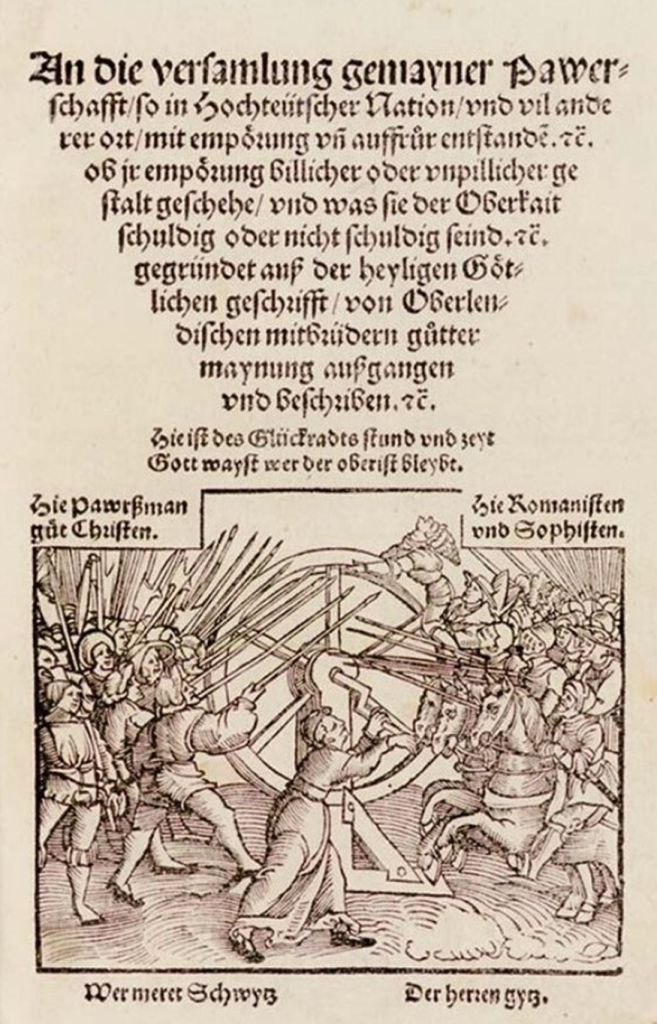 An die versamlung gemayner Pawer⸗
schafft/so in Hochteütscher Nation/vnd vil ande
rer ort/mit empörung vñ auffrůr entstandẽ.ꝛc̃.
ob jr empörung billicher oder vnpillicher ge
stalt geschehe/ vnd was sie der Oberkait
schuldig oder nicht schuldig seind.ꝛc̃.
gegründet auß der heyligen Göt⸗
lichen geschrifft/ von Oberlen⸗
dischen mitbrüdern gůtter
maynung außgangen
vnd beschriben.ꝛc̃.
Hie ist des Glückradts stund vnd zeyt
Gott wayst wer der oberist bleybt.
Hie Pawrßman
gůt Christen.
Hie Romanisten
vnd Sophisten.
Wer meret Schwytz
Der herren gytz.